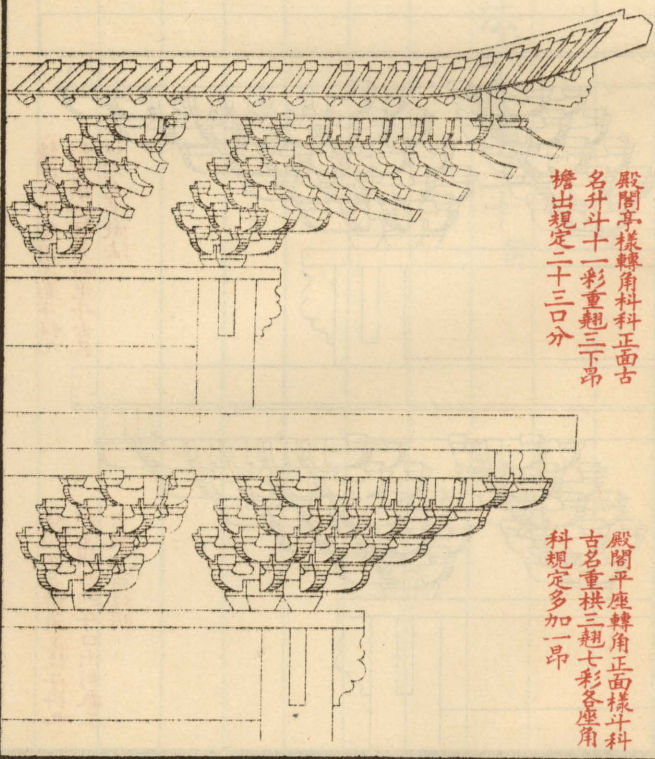 殿閣亭樣轉角科科正面古
名升斗十一彩重翘三下昂
檐出規定二十三口分
殿閣平座轉角正面樣斗科
古名重栱三翘七彩各座角
科規定多加一昂